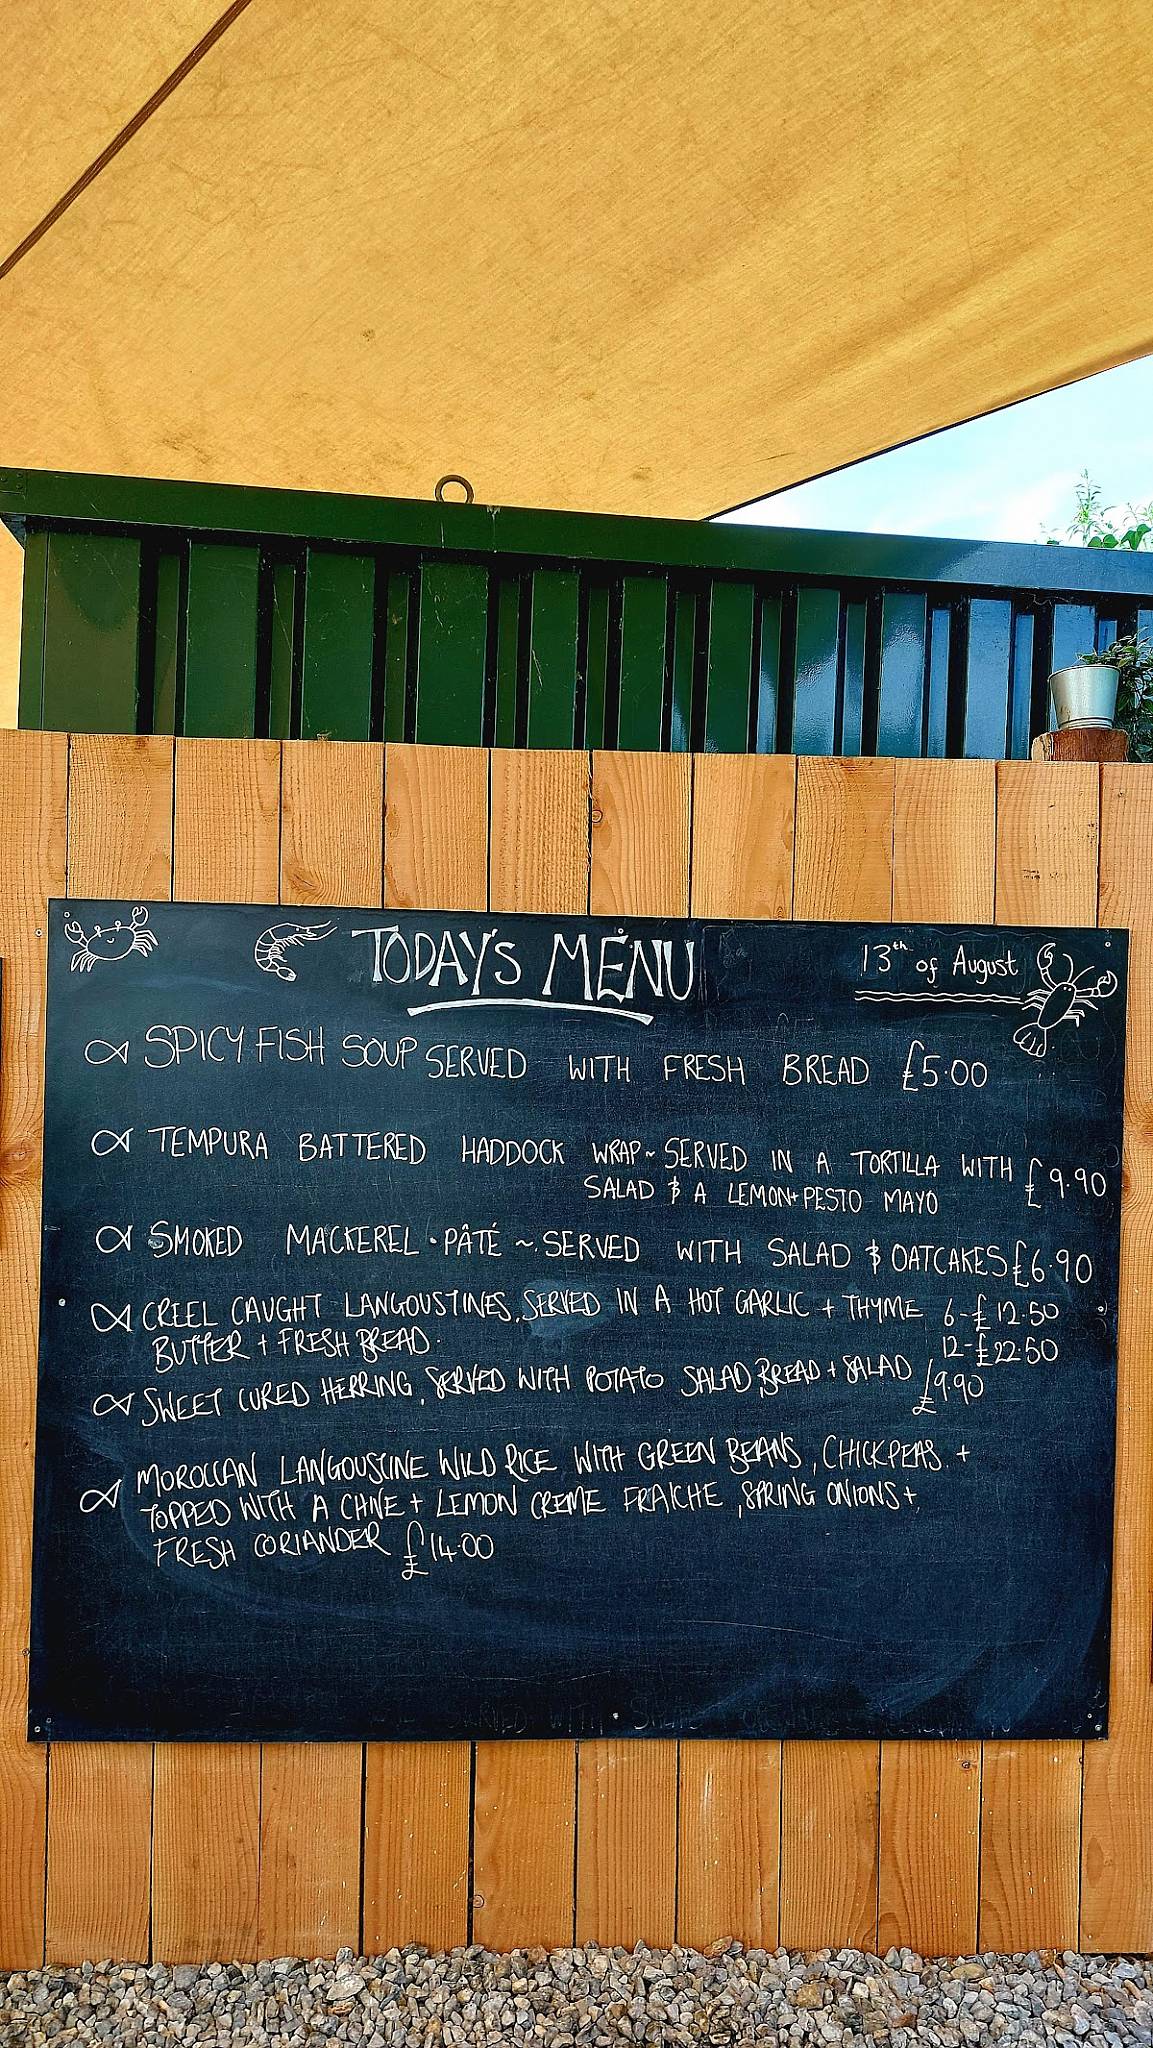 TODAY'S MENU
13th of August
SPICY FISH SOUP SERVED WITH FRESH BREAD £5.00
TEMPURA BATTERED HADDOCK WRAP ~ SERVED IN A TORTILLA WITH £9.90
SALAD & A LEMON + PESTO MAYO
SMOKED MACKEREL · PÂTÉ ~ SERVED WITH SALAD & OATCAKES £6.90
CREEL CAUGHT LANGOUSTINES, SERVED IN A HOT GARLIC + THYME 6-£12.50
BUTTER + FRESH BREAD. 12-£22.50
SWEET CURED HERRING, SERVED WITH POTATO SALAD, BREAD + SALAD £9.90
MOROCCAN LANGOUSTINE WILD RICE WITH GREEN BEANS, CHICKPEAS. +
TOPPED WITH A CHIVE + LEMON CREME FRAICHE, SPRING ONIONS +
FRESH CORIANDER £14.00